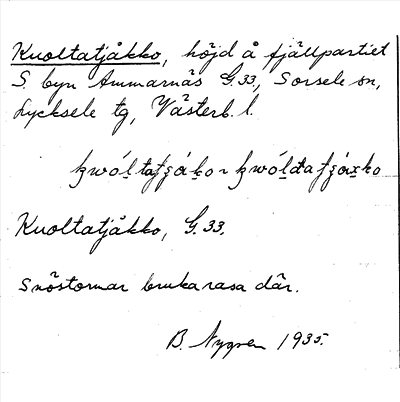 Kuoltatjåkko, höjd å fjällpartiet
S. byn Ammarnäs G.33, Sorsele sn,
Lycksele tg, Västerb. l.
Kuoltatjåkko, G.33.
Snöstormar bruka rasa där.
B. Nygren 1935.